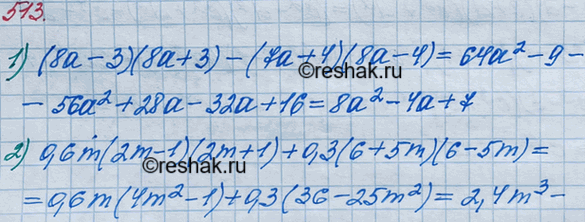 513.
1) (8a-3)(8a+3)-(7a+4)(8a-4)=64a²-9-
-56a²+28a-32a+16=8a²-4a+7
©reshak.ru
2) 0,6m(2m-1)(2m+1)+0,3(6+5m)(6-5m)=
=0,6m(4m²-1)+0,3(36-25m²)=2,4m³-
©reshak.ru